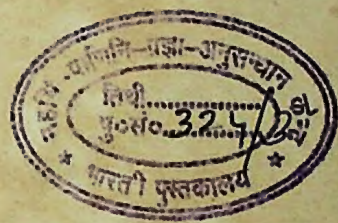 महर्षि-पाणिनि-प्रज्ञा-अनुसन्धान
तिथी..............
पु०सं० 324
★ भारती पुस्तकालय ★